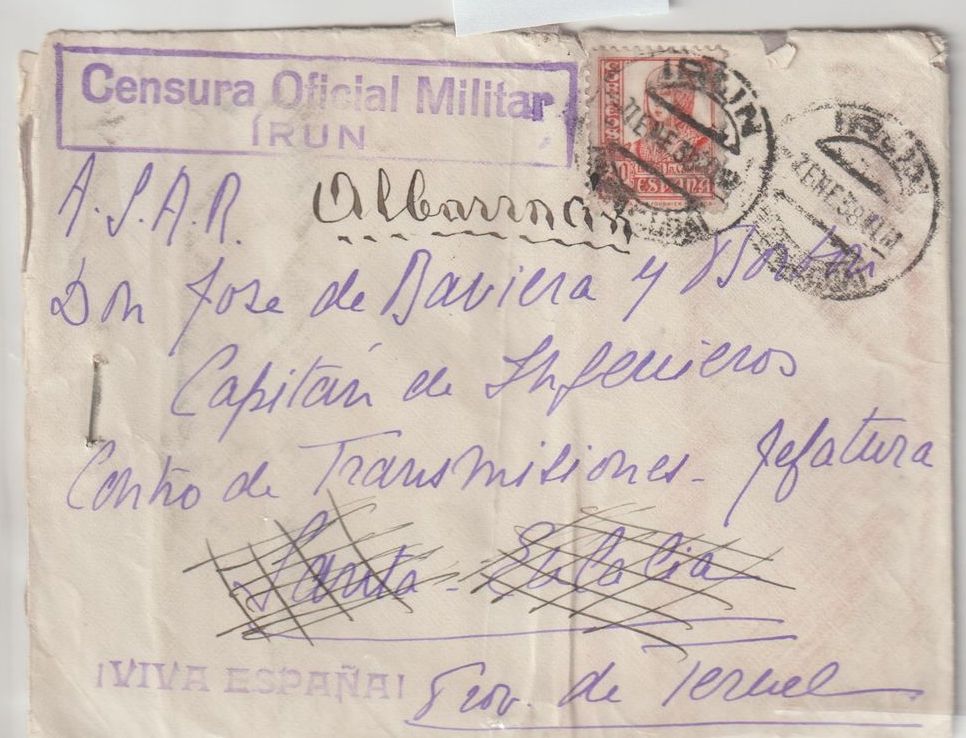 Censura Oficial Militar
ÍRUN
IRUN
ESPAÑA
IRUN
A. S. A. R.
Albarracin
Don Jose de Baviera y Borbón
Capitán de Ingenieros
Centro de Transmisiones - Jefatura
Santa - Eulalia
¡VIVA ESPAÑA!
Prov. de Teruel